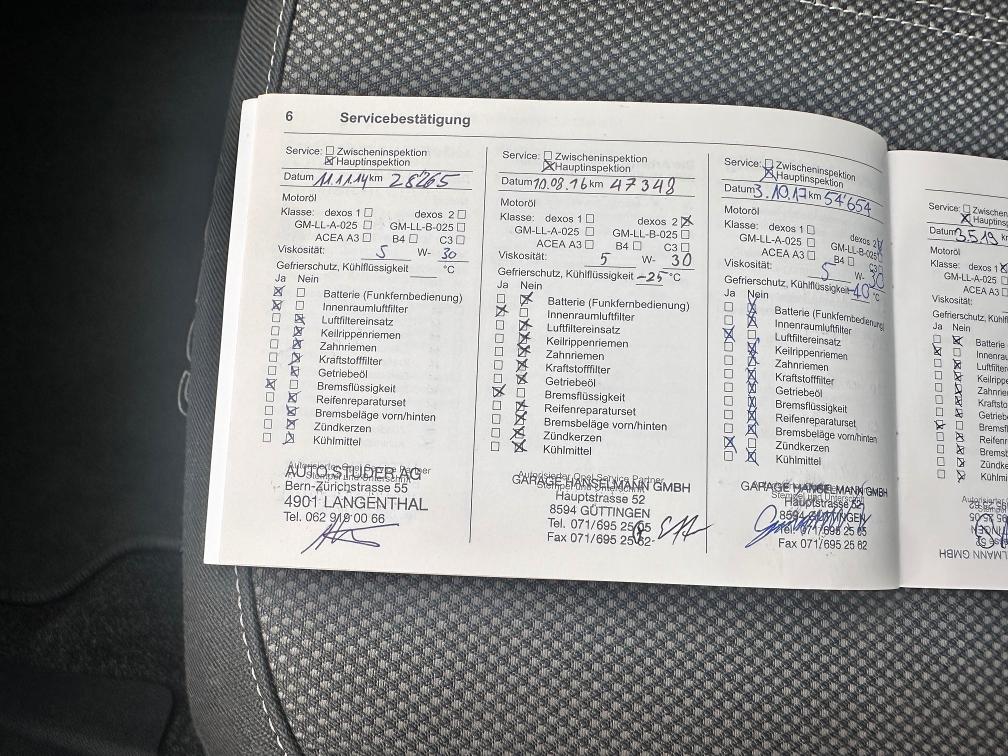 6 Servicebestätigung
Service: Zwischeninspektion
Hauptinspektion
Datum 11.11.14 km 28265
Motoröl
Klasse: dexos 1 dexos 2
GM-LL-A-025 GM-LL-B-025
ACEA A3 B4 C3
Viskosität: 5 W- 30
Gefrierschutz, Kühlflüssigkeit °C
Ja Nein
Batterie (Funkfernbedienung)
Innenraumluftfilter
Luftfiltereinsatz
Keilrippenriemen
Zahnriemen
Kraftstofffilter
Getriebeöl
Bremsflüssigkeit
Reifenreparaturset
Bremsbeläge vorn/hinten
Zündkerzen
Kühlmittel
Autorisierter Opel Service Partner
AUTO STUDER AG
Bern-Zürichstrasse 55
4901 LANGENTHAL
Tel. 062 919 00 66
Service: Zwischeninspektion
Hauptinspektion
Datum 10.08.16 km 47348
Motoröl
Klasse: dexos 1 dexos 2
GM-LL-A-025 GM-LL-B-025
ACEA A3 B4 C3
Viskosität: 5 W- 30
Gefrierschutz, Kühlflüssigkeit -25 °C
Ja Nein
Batterie (Funkfernbedienung)
Innenraumluftfilter
Luftfiltereinsatz
Keilrippenriemen
Zahnriemen
Kraftstofffilter
Getriebeöl
Bremsflüssigkeit
Reifenreparaturset
Bremsbeläge vorn/hinten
Zündkerzen
Kühlmittel
Autorisierter Opel Service Partner
GARAGE HANSELMANN GMBH
Hauptstrasse 52
8594 GÜTTINGEN
Tel. 071/695 25 65
Fax 071/695 25 62
Service: Zwischeninspektion
Hauptinspektion
Datum 3.10.17 km 54'654
Motoröl
Klasse: dexos 1 dexos 2
GM-LL-A-025 GM-LL-B-025
ACEA A3 B4 C3
Viskosität: 5 W- 30
Gefrierschutz, Kühlflüssigkeit -40 °C
Ja Nein
Batterie (Funkfernbedienung)
Innenraumluftfilter
Luftfiltereinsatz
Keilrippenriemen
Zahnriemen
Kraftstofffilter
Getriebeöl
Bremsflüssigkeit
Reifenreparaturset
Bremsbeläge vorn/hinten
Zündkerzen
Kühlmittel
Stempel und Unterschrift
GARAGE HANSELMANN GMBH
Hauptstrasse 52
8594 GÜTTINGEN
Tel. 071/695 25 65
Fax 071/695 25 62
Service: Zwischen
Hauptins
Datum 3.5.19 k
Motoröl
Klasse: dexos 1
GM-LL-A-025
ACEA A3
Viskosität:
Gefrierschutz, Kühlfl
Ja Nein
Batterie
Innenra
Luftfilter
Keilrippe
Zahnrie
Kraftsto
Getrieb
Bremsfl
Reifenr
Bremsb
Zündke
Kühlmi